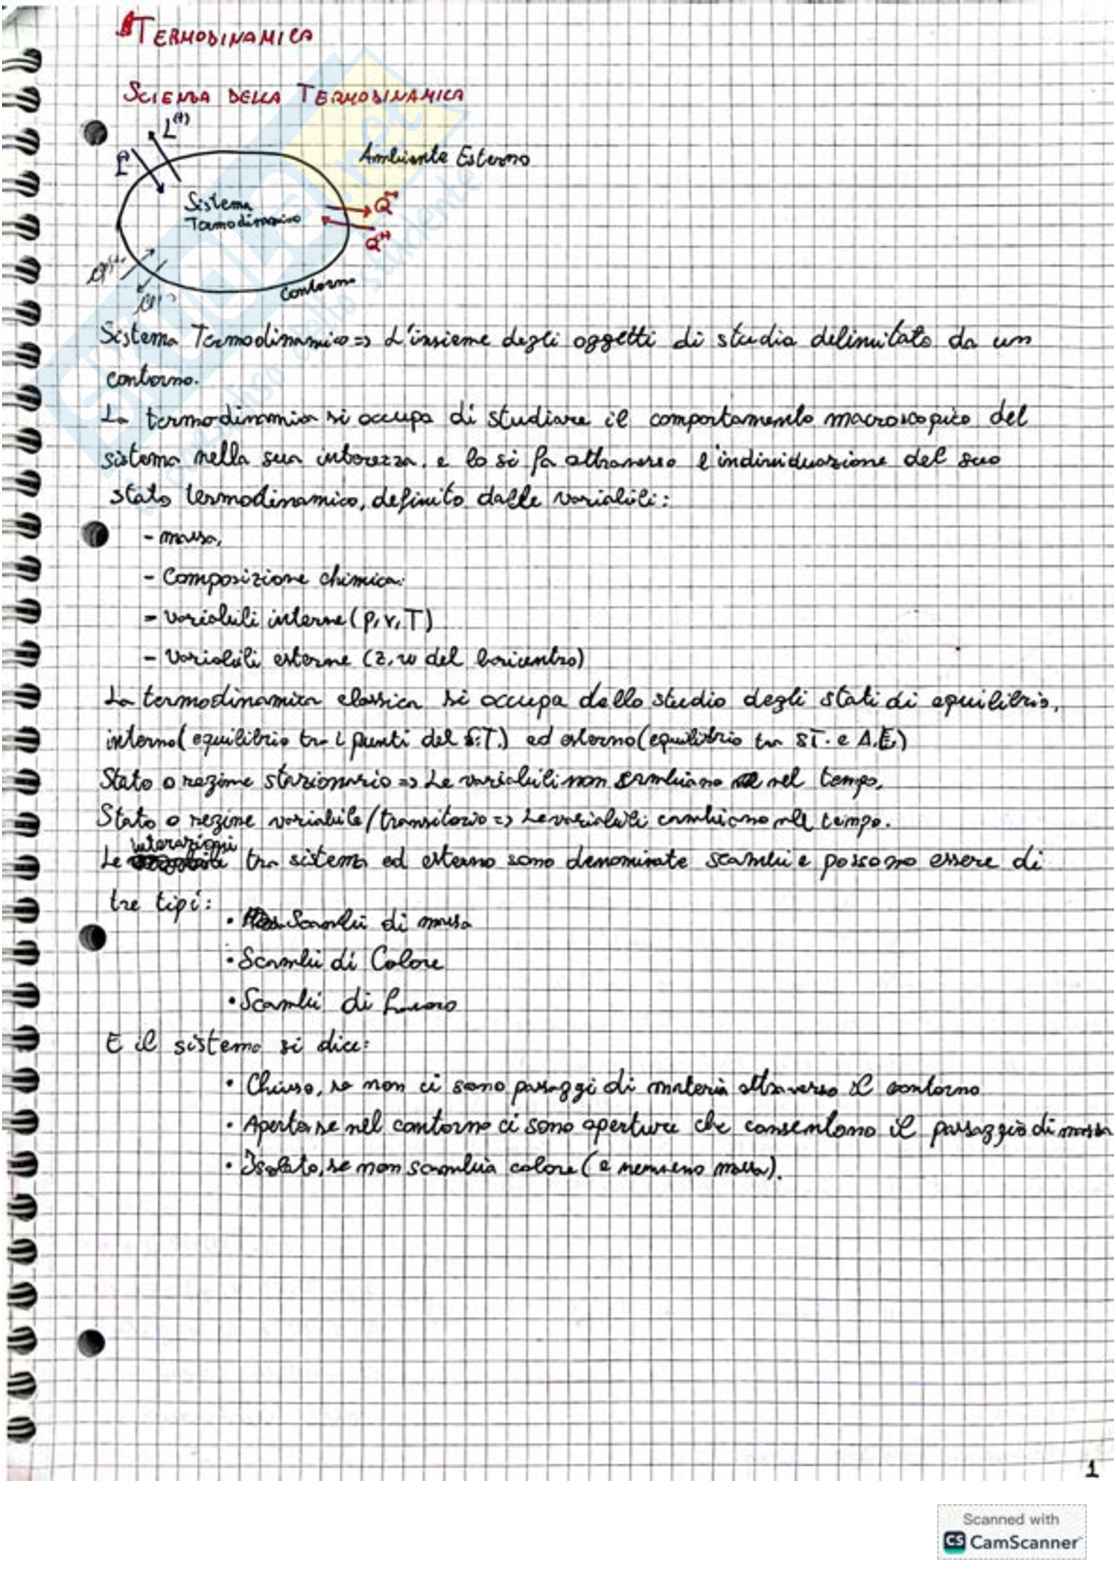 TERMODINAMICA
SCIENZA DELLA TERMODINAMICA
L(+)
L(-)
Ambiente Esterno
Sistema
Termodinamico
Q(-)
Q(+)
Contorno
Sistema Termodinamico => L'insieme degli oggetti di studio delimitato da un
contorno.
La termodinamica si occupa di studiare il comportamento macroscopico del
sistema nella sua interezza, e lo si fa attraverso l'individuazione del suo
stato termodinamico, definito dalle variabili:
- massa,
- Composizione chimica.
- variabili interne (p, v, T)
- variabili esterne (z, w del baricentro)
La termodinamica classica si occupa dello studio degli stati di equilibrio,
interno (equilibrio tra i punti del S.T.) ed esterno (equilibrio tra S.T. e A.E.)
Stato o regime stazionario => Le variabili non cambiano nel tempo.
Stato o regime variabile/transitorio => Le variabili cambiano nel tempo.
Le interazioni tra sistema ed esterno sono denominate scambi e possono essere di
tre tipi:
• Scambi di massa
• Scambi di Calore
• Scambi di Lavoro
E il sistema si dice:
• Chiuso, se non ci sono passaggi di materia attraverso il contorno
• Aperto, se nel contorno ci sono aperture che consentono il passaggio di massa
• Isolato, se non scambia calore (e nemmeno massa).
1
Scanned with
CS CamScanner